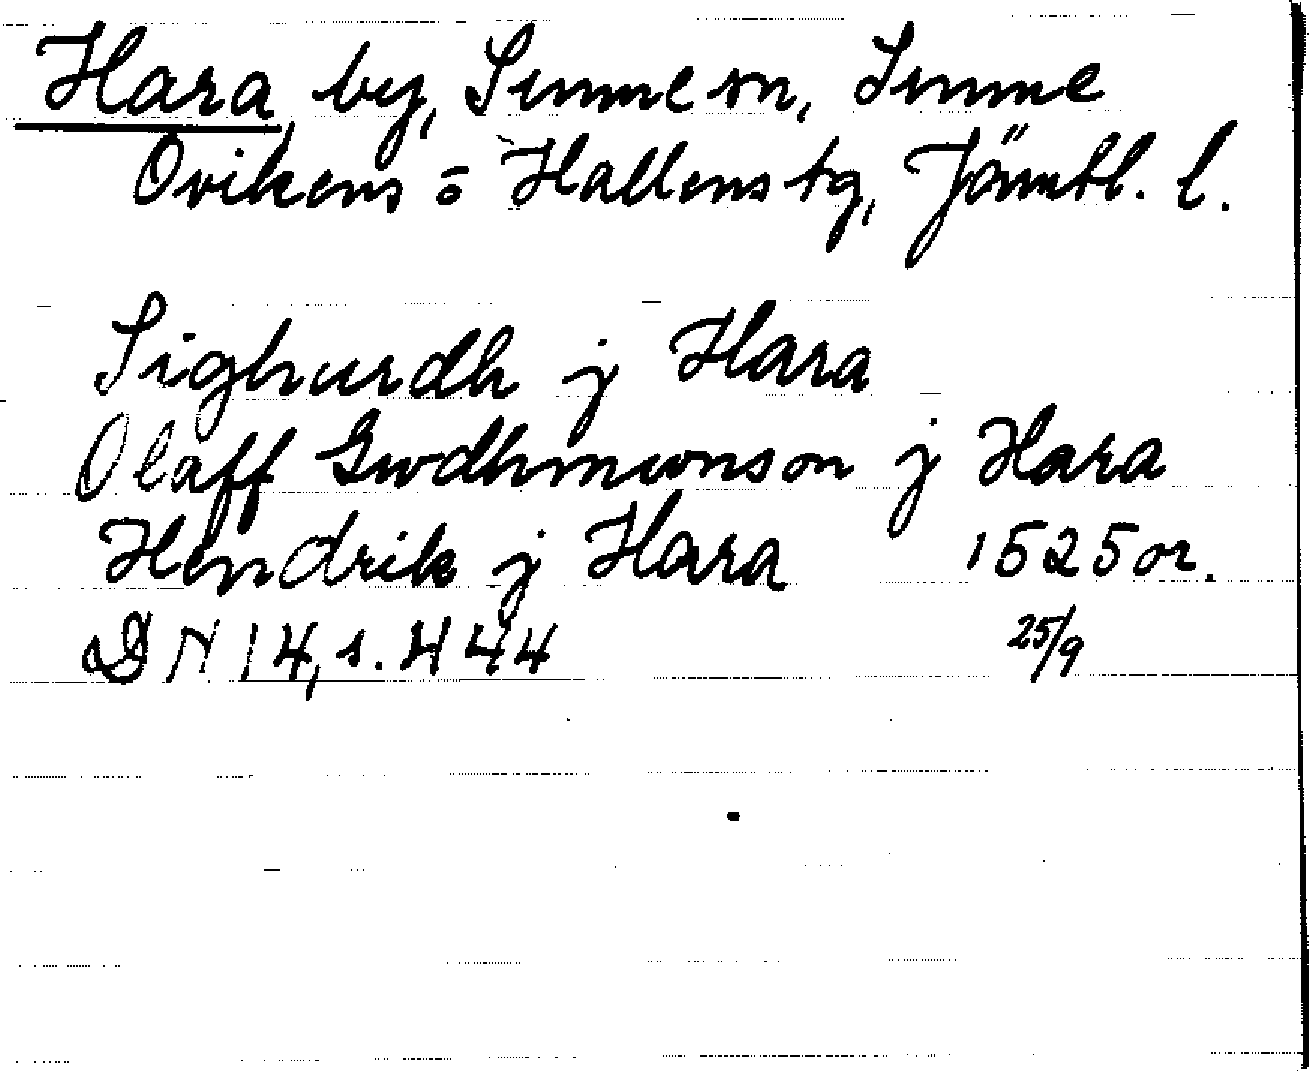 Hara by, Sunne sn, Sunne
Ovikens o Hallens tg, Jämtl. l.
Sighurdh j Hara
Olaff Gwdhmwnson j Hara
Hendrik j Hara 1525 or.
DN 14, s. 444 25/9